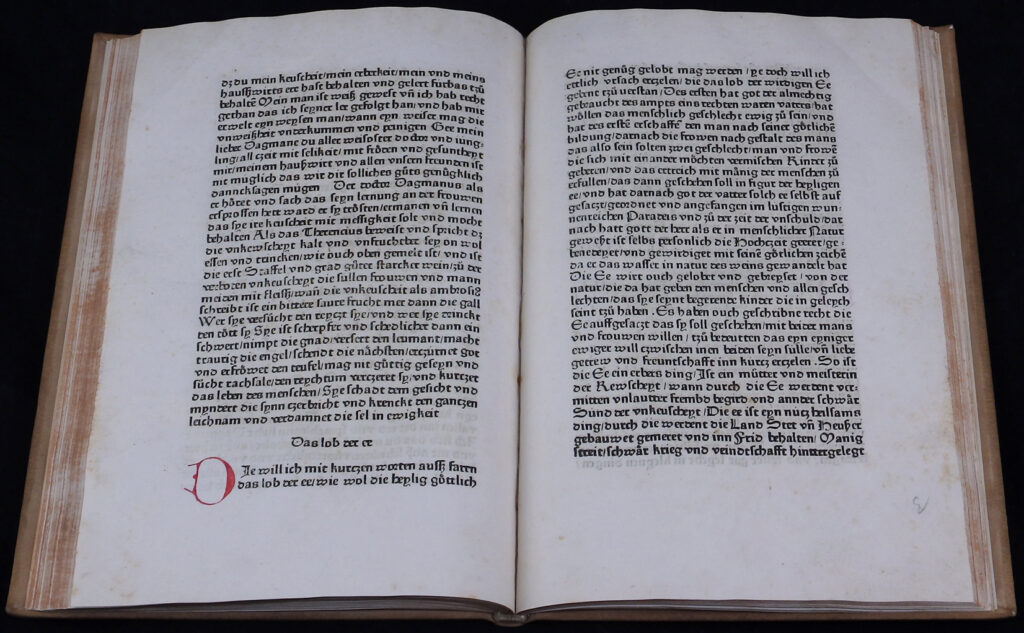 dz du mein keuscheit/mein erberkeit/mein vnd meins
haußwirts eer hast behalten vnd geleert furbas tzů
behaltē Mein man ist weiß gewest vñ ich hab recht
gethan das ich seyner ler gefolgt han/vnd hab mir
erwelt eyn weysen man/wann eyn weiser mag die
vnweißheit vnderkummen vnd penigen Got mein
lieber Dagmane du aller weisoster doctor vnd iung-
ling/all czeit mit selikeit/mit fröden vnd gesuntheyt
mit/meinem haußwirt vnd allen vnsern freunden ist
nit muglich das wir dir solliches gůts genůgklich
dancksagen mügen Der doctor Dagmanus als
er hôret vnd sach das seyn lernung an der frouwen
ersprossen hett ward er sy trôsten/ermanen vñ lernen
das sye ire keuscheit mit messigkeit solt vnd mocht
behalten Als das Therencius beweist vnd spricht dz
die vnkewscheyt kalt vnd vnfruchber sey on wol
essen vnd trincken/wie ouch oben gemelt ist/vnd ist
die erst Staffel vnd grad gůter starcker wein/zů der
verboten vnkeuscheyt die sullen frouwen vnd mann
meiden mit fleiß/wañ die vnkeuscheit als ambrosiꝰ
schreibt ist ein bittere saure frucht mer dann die gall
Wer sye versůcht den reyczt sye/vnd wer sye trinckt
den tôtt sy Sye ist scherpfer vnd schedlicher dann ein
schwert/nimpt die gnad/versert den leumant/macht
traurig die engel/schendt die nächsten/erczürnet got
vnd erfröwet den teufel/mag nit gůttig geseyn vnd
sücht rachsale/den reychtum verczeret sy/vnd kurczet
das leben des menschen/Sye schadt dem gesicht vnd
myndert die synn czerbricht vnd krenckt den ganczen
leichnam vnd verdamnet die sel in ewigkeit
Das lob der ee
DJe will ich mit kurczen worten auß faren
das lob der ee/wie wol die heylig göttlich
Ee nit genůg gelobt mag werden/ye doch will ich
etlich vrsach erczelen/die das lob der wirdigen Ee
gebent tzů verstan/Des ersten hat got der almechtig
gebraucht des ampts eins rechten waren vatters/hat
wöllen das menschlich geschlecht ewig zů sein/vnd
hat des erstē erschaffē den man nach seiner götlichē
bildung/darnach die frowen nach gestalt des mans
das also sein solten zwey geschlecht/man vnd frowē
die sich mit einander möchten vermischen Kinder zů
geberen/vnd das ertreich mit mänig der menschen zů
erfullen/das dann geschehen soll in figur der heyligen
ee/vnd hat darnach got der vatter solch ee selbst auf
gesaczt/geordnet vnd angefangen im lustigen wun-
nenreichen Paradeis vnd zů der zeit der vnschuld/dar
nach hatt gott der herr als er in menschlicher Natur
geweßt ist selbs personlich die Hochzeit geeret/ge-
benedeyet/vnd gewirdiget mit seinē götlichen zeichē
da er das wasser in natur des weins gewandelt hat
Die Ee wirt ouch gelobet vnd gebreyset/von der
natur/die da hat geben den menschen vnd allen gesch
lechten/das sye seynt begerende kinder die in geleych
seint zů haben. Es haben ouch geschribne recht die
Ee auffgesaczt das sy soll geschehen/mit beider mans
vnd frouwen willen/tzů bedeutten das eyn eyniger
ewiger will czwischen inen beiden seyn sulle/vñ liebe
getrew vnd freuntschafft inn kurtz erczelen. So ist
die Ee ein erbers ding/Ist ein můtter vnd meisterin
der Kewscheyt/wann durch die Ee werdent ver-
mitten vnlauter frembd begird vnd annder schwär
Sünd der vnkeuscheyt/Die ee ist eyn nücz heilsams
ding/durch die werdent die Land Stet vñ Heußer
gebauwet gemeret vnd inn Frid behalten/Manig
streit/schwär krieg vnd veindtschafft hintergelegt